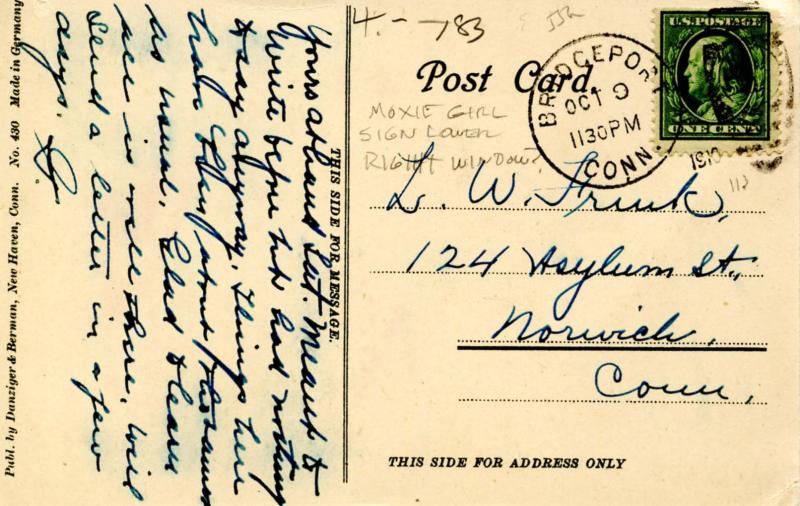 4. - 783
JJh
Post Card
U.S. POSTAGE
ONE CENT
BRIDGEPORT
OCT 9
1130 PM
1910
CONN.
MOXIE GIRL
SIGN LOWER
RIGHT WINDOW?
L. W. Frink,
124 Asylum St.,
Norwich,
Conn,
THIS SIDE FOR ADDRESS ONLY
THIS SIDE FOR MESSAGE.
Yours at hand Sat. Meant to
write before but had nothing
to say anyway. Things here
about the same
as usual. Glad to hear
all is well there, will
send a letter in a few
days.
Publ. by Danziger & Berman, New Haven, Conn. No. 430 Made in Germany